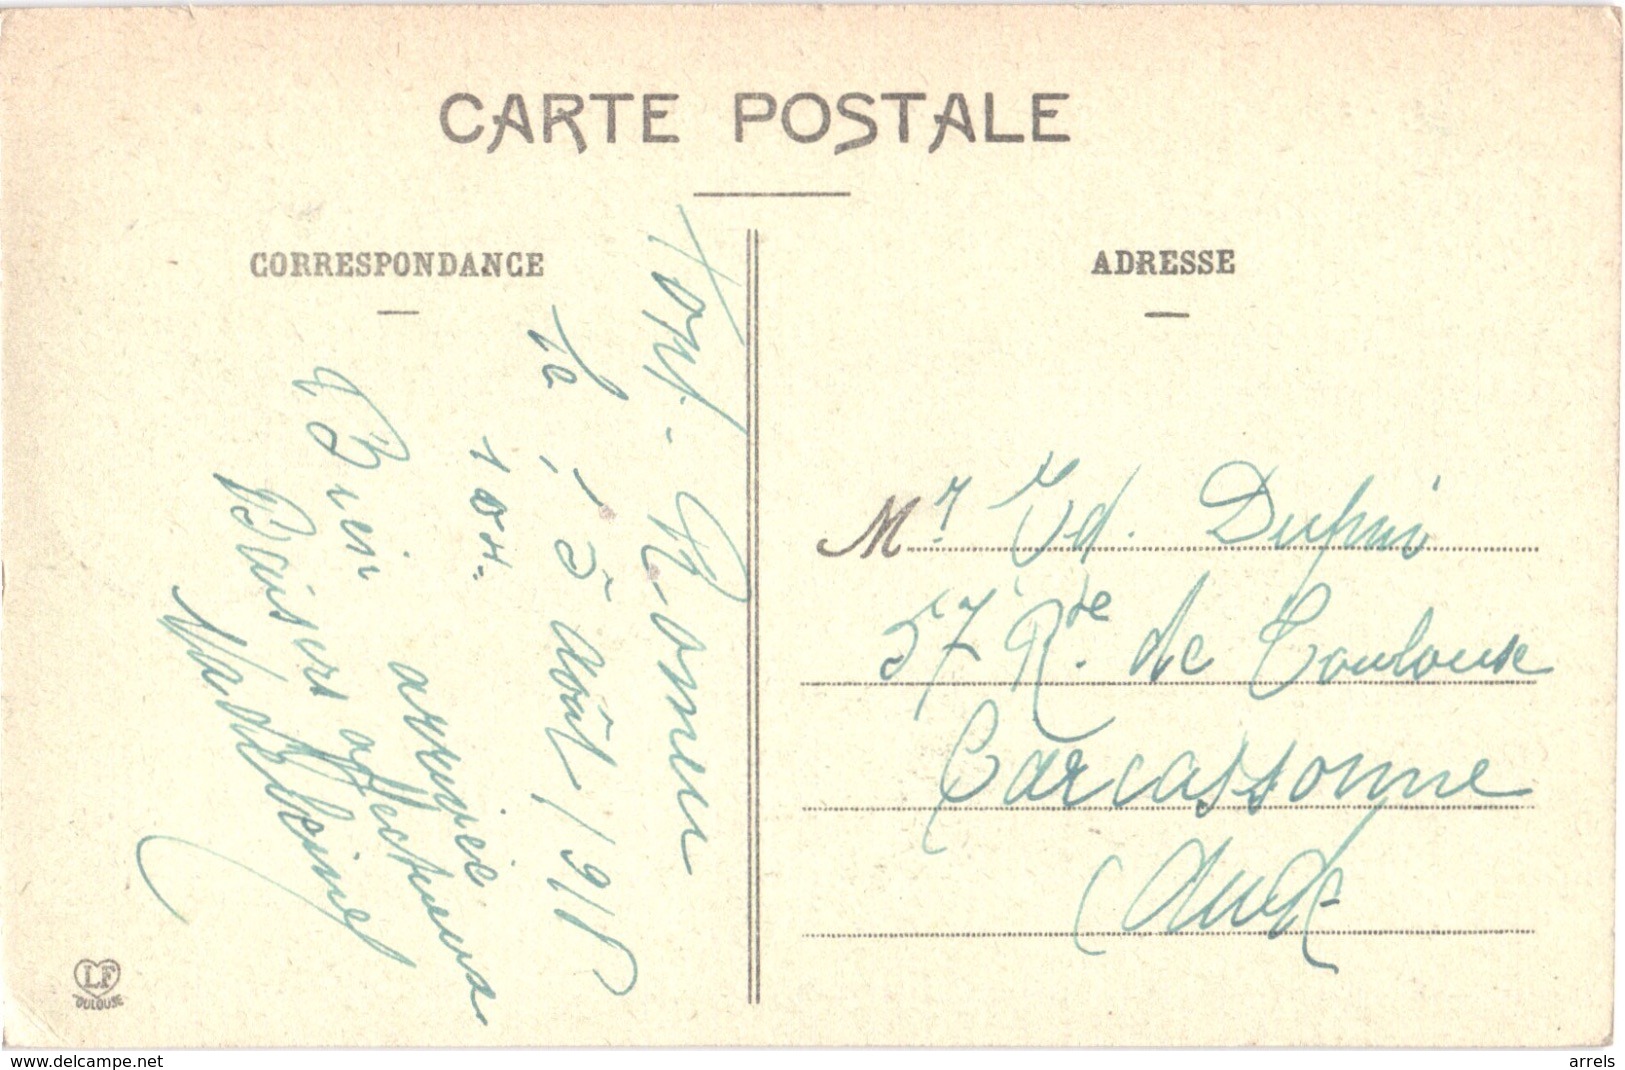 CARTE POSTALE
CORRESPONDANCE
ADRESSE
Font-Romeu
le 15 Août 191
10 H.
Bien arrivée
Baisers affectueux
Mr Ed. Dupuis
57 Rte de Toulouse
Carcassonne
(Aude
LF
TOULOUSE
www.delcampe.net
arrels